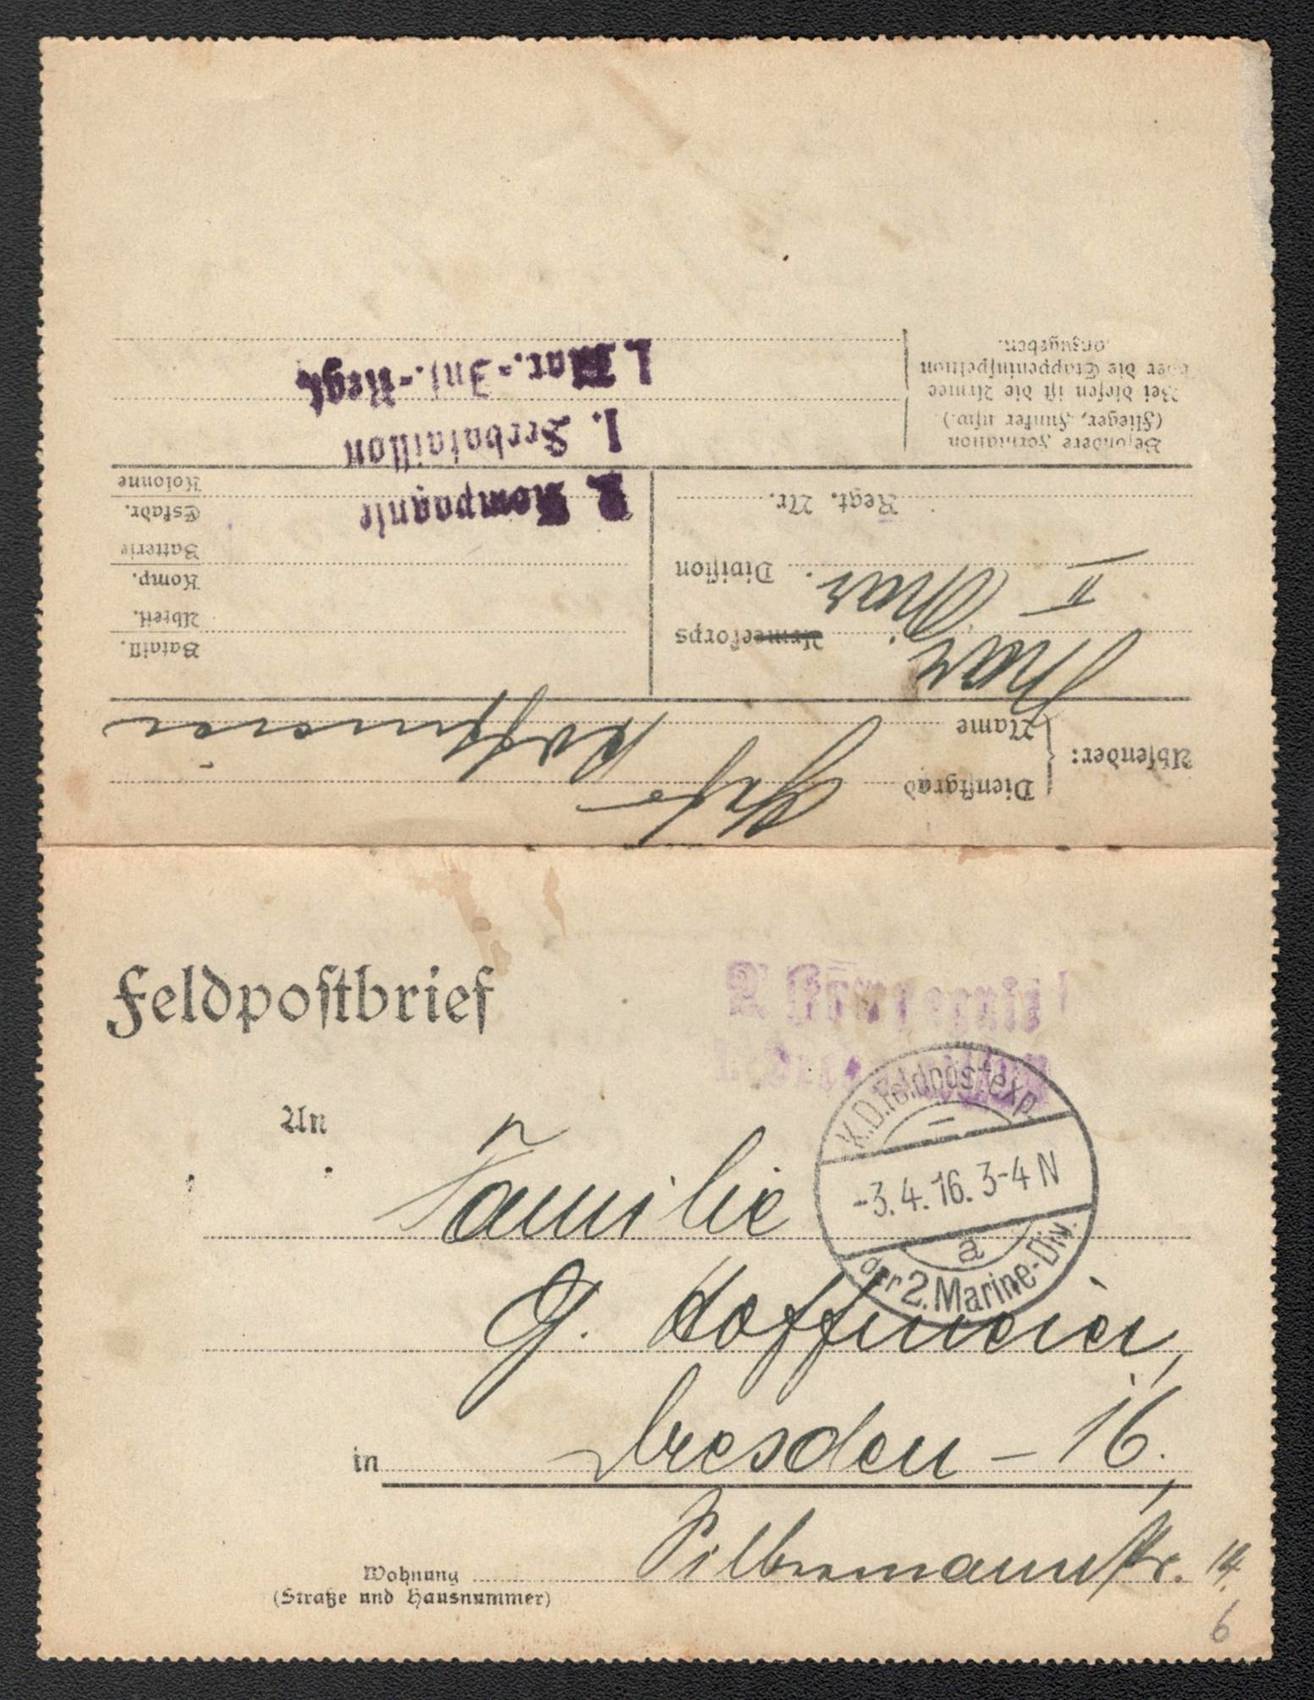 Absender:
Dienstgrad
Name
Hoffmeier
Mar.
Armeekorps
II Mar.
Division
Regt. Nr.
Bataill.
Abteil.
Komp.
Batterie
Eskadr.
Kolonne
2. Kompagnie
1. Seebataillon
1. Mar.-Inf.-Regt.
Besondere Formation
(Flieger, Funker usw.)
Bei diesen ist die Armee
oder die Etappeninspektion
anzugeben.
Feldpostbrief
2. Kompagnie
K.D. Feldpostexp.
-3.4.16. 3-4 N
a
der 2. Marine-Div.
An
Familie
G. Hoffmeier,
in Dresden - 16.
Wohnung
(Straße und Hausnummer)
Silbermannstr. 14.
6